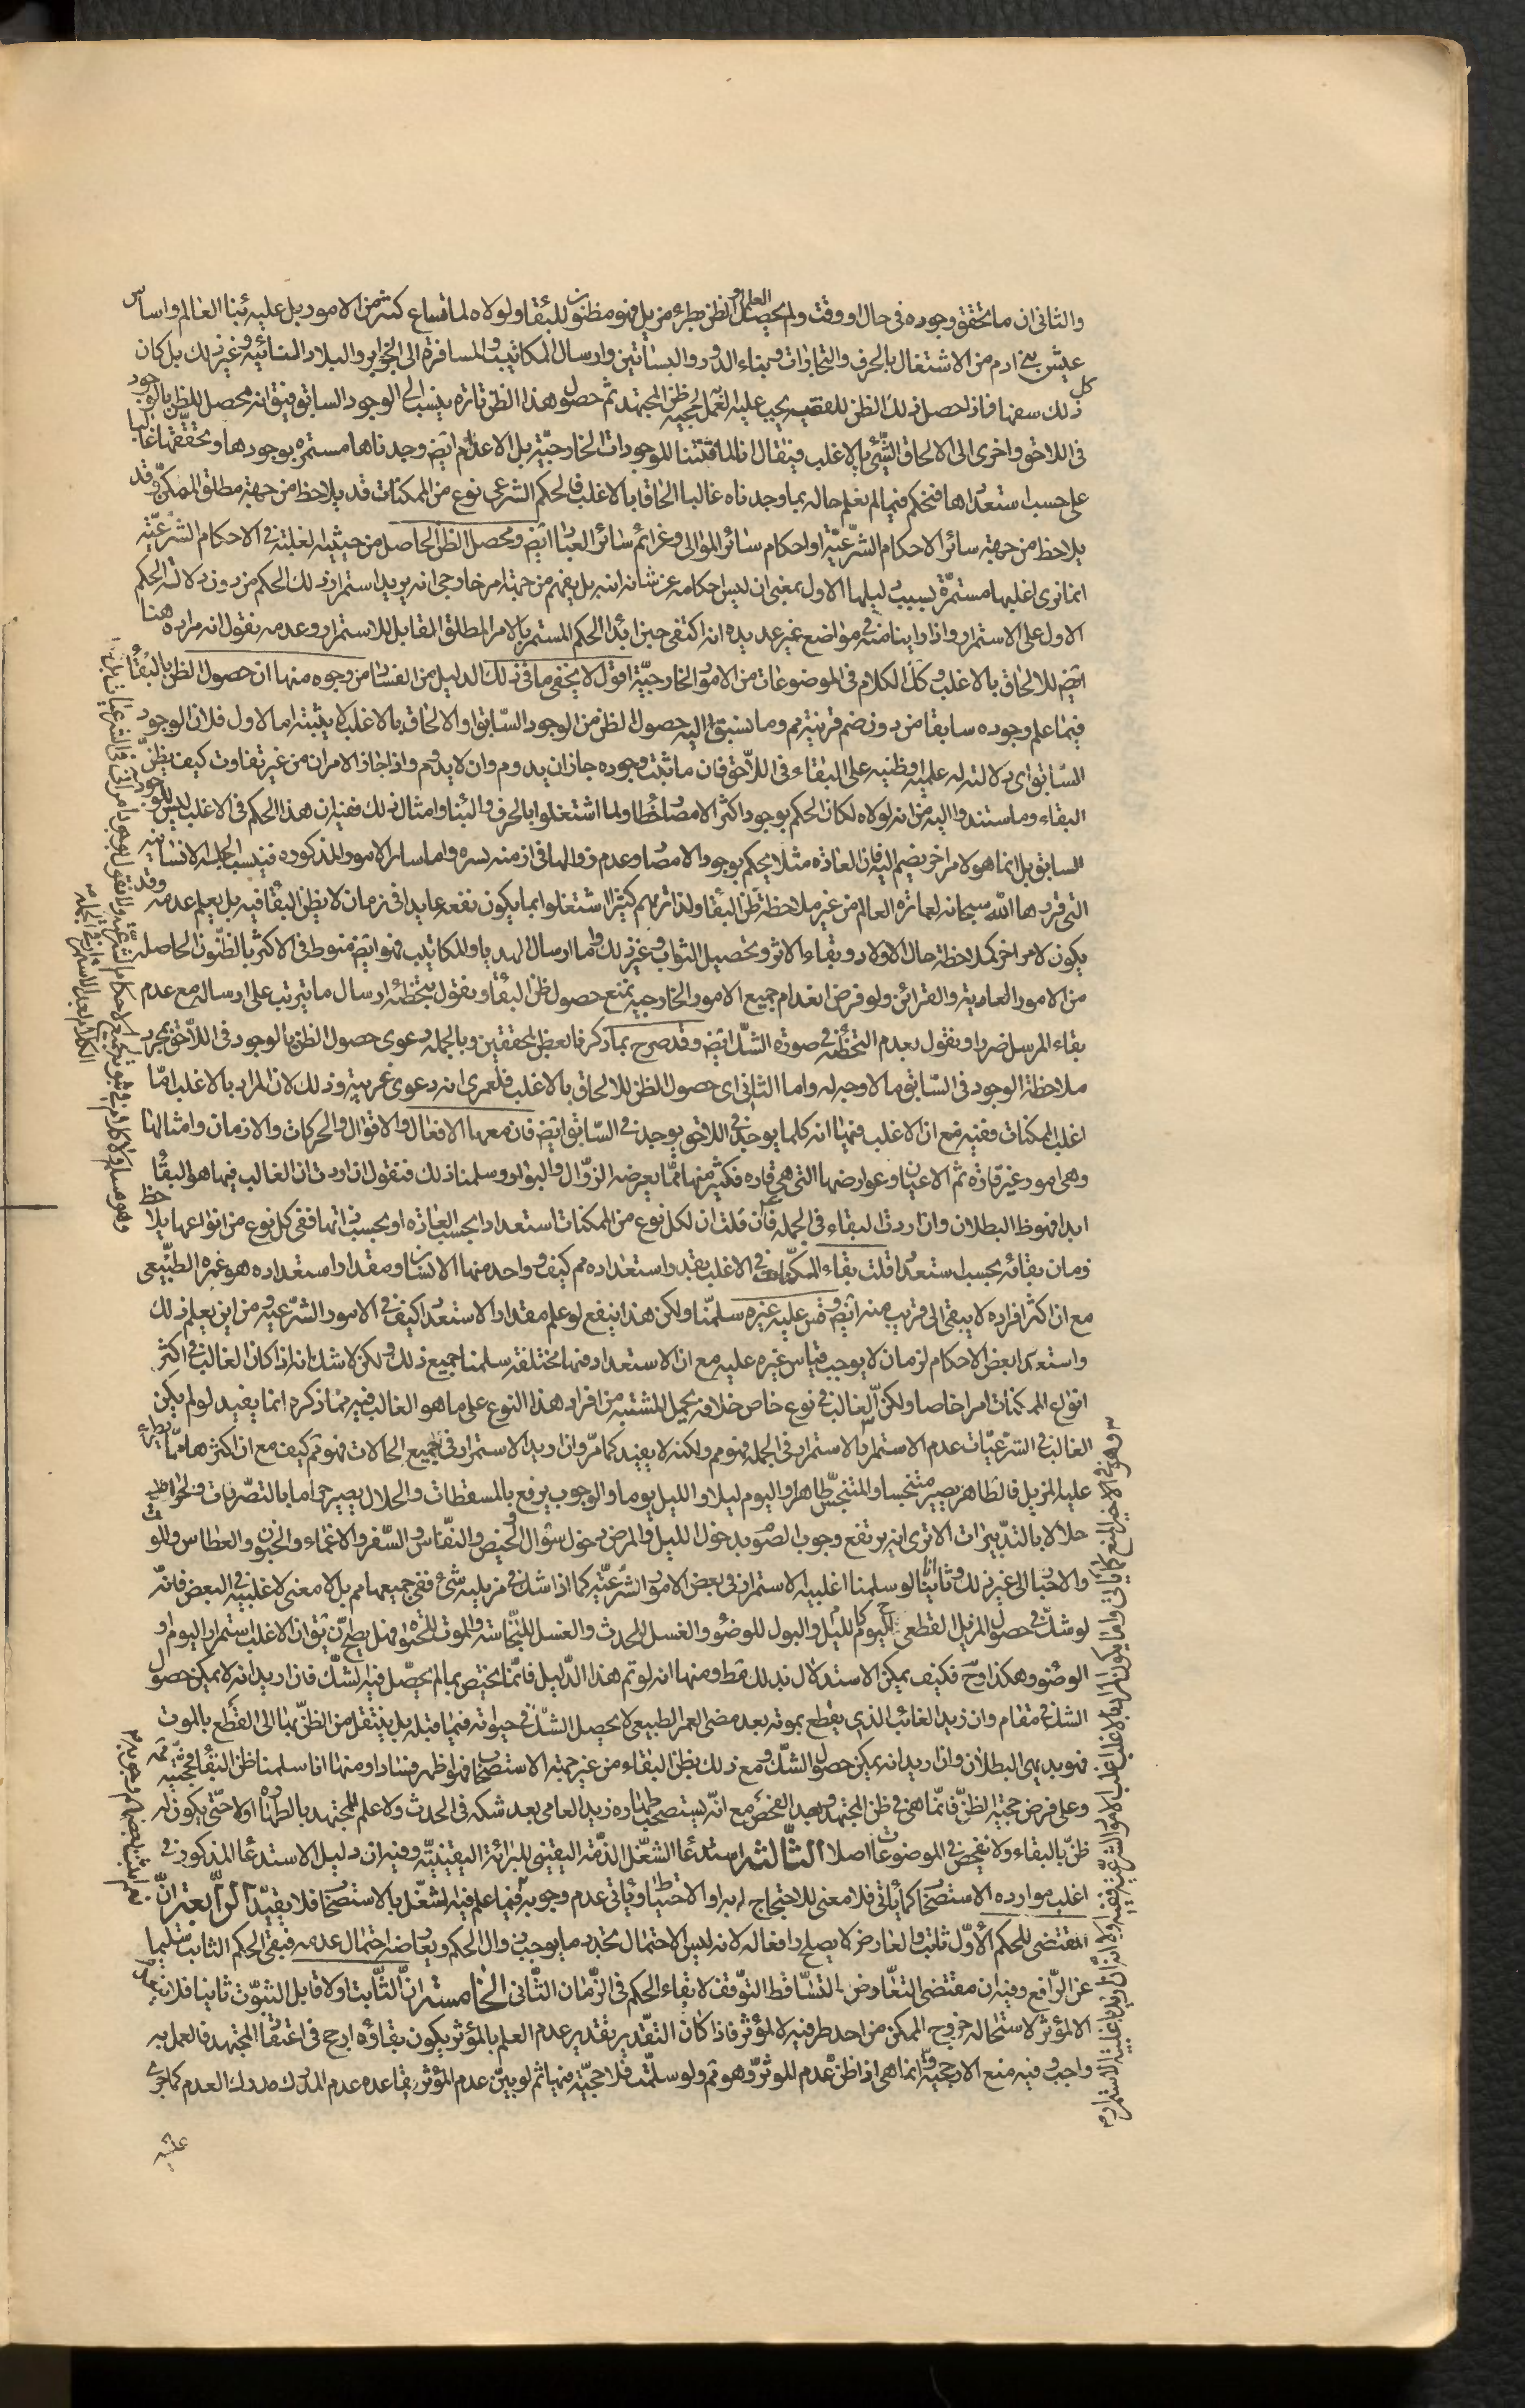 والثانى ان ما تحقق وجوده فى حال او وقت ولم يحصل العلم او الظن بطرء مزيل فهو مظنون للبقاء ولولاه لما ساغ كثير من الامور بل عليه بناء العالم واساس
عيش بنى ادم من الاشتغال بالحرف والتجارات وبناء الدور والبساتين وارسال المكاتيب والمسافرة الى الجزاير والبلاد النائية وغير ذلك بل كان
كل ذلك سفها فاذا حصل ذلك الظن للفقيه يجب عليه العمل لحجية ظن المجتهد ثم حصول هذا الظن تارة ينسب الى الوجود السابق فيق انه محصل للظن بالوجود
فى اللاحق واخرى الى الالحاق الشئ بالاغلب فيقال انا لما فتشنا الموجودات الخارجية بل الاعدام ايض وجدناها مستمرة بوجودها وتحققها غالبا
على حسب استعدادها فنحكم فيما لم نعلم حاله بما وجدناه غالبا الحاقا بالاغلب فالحكم الشرعى نوع من الممكنات قد يلاحظ من جهة مطلق الممكن وقد
يلاحظ من جهة سائر الاحكام الشرعية او احكام سائر الموالى وعزائم سائر العباد ايض ومحصل الظن الحاصل من حيثية الغلبة فى الاحكام الشرعية
انما نرى اغلبها مستمرة بسبب دليلها الاول بمعنى ان ليس احكامه عن شانه انه بل يفهم من جهة امر خارجى انه يريد استمرار ذلك الحكم من دون دلالة الحكم
الاول على الاستمرار واذا راينا منه فى مواضع غير عديدة انه اكتفى حين ابداء الحكم المستمر بالامر المطلق القابل للاستمرار وعدمه نقول انه مراده هنا
ايض للالحاق بالاغلب وكك الكلام فى الموضوعات من الامور الخارجية اقول لا يخفى ما فى ذلك الدليل من الفساد من وجوه منها ان حصول الظن بالبقاء
فيما علم وجوده سابقا من دون ضم قرينة مم وما نسبوا اليه حصول الظن من الوجود السابق او الالحاق بالاغلب لا يثبته اما الاول فلان الوجود
السابق اى دلالة له علمية او ظنية على البقاء فى اللاحق فان ما ثبت وجوده جاز ان يدوم وان لا يدوم واذا جاز الامران من غير تفاوت كيف يظن
البقاء وما استندوا اليه من انه لولاه لكان الحكم بوجود اكثر الامصار خطا ولما اشتغلوا بالحرف والبناء وامثال ذلك ففيه ان هذا الحكم فى الاغلب ليس للوجود
السابق بل انما هو لامر اخر يضم اليه فان العادة مثلا يحكم بوجود الامصار وعدم زوالها فى ازمنة يسيرة واما ساير الامور المذكورة فبسبب الجبلة الانسانية
التى قررها الله سبحانه لعمارة العالم من غير ملاحظة ظن البقاء ولذا تريهم كثيرا اشتغلوا بما يكون نفعه عايدا فى زمان لا يظن البقاء فيه بل يعلم عدمه وقد
يكون لامر اخر كملاحظة حال الاولاد وبقاء الاثر وتحصيل الثواب وغير ذلك واما ارسال الهدايا والمكاتيب فهو ايض منوط فى الاكثر بالظنون الحاصلة
من الامور العادية والقرائن ولو فرض انعدام جميع الامور الخارجية نمنع حصول ظن البقاء ونقول بتخطئة ارسال ما يترتب على ارساله مع عدم
بقاء المرسل ضررا ونقول بعدم التخطئة فى صورة الشك ايض وقد صرح بما ذكر فا بعض المحققين وبالجملة دعوى حصول الظن بالوجود فى اللاحق بمجرد
ملاحظة الوجود فى السابق مما لا وجه له واما الثانى اى حصول الظن للالحاق بالاغلب فلعمرى انه دعوى غريبة وذلك لان المراد بالاغلب اما
اغلب الممكنات ففيه منع ان الاغلب فيها انه كلما يوجد فى اللاحق يوجد فى السابق ايض فان معها الافعال والاقوال والحركات والازمان وامثالها
وهى امور غير قارة ثم الاعيان وعوارضها التى هى قارة فكثير منها مما يعرضه الزوال والبوار ولو سلمنا ذلك فنقول ان اردت ان الغالب فيها هو البقاء
ابدا فهو ظ البطلان وان اردت البقاء فى الجملة فان قلت ان لكل نوع من الممكنات استعدادا بحسب العادة او بحسب ذاتها ففى كل نوع من انواعها يلاحظ
زمان بقائه بحسب استعداده قلت بقاء الممكنات فى الاغلب بقدر استعداده مم كيف وواحد منها الانسان ومقدار استعداده هو عمره الطبيعى
مع ان اكثر افراده لا يبقى الى قريب منه ايض وقس عليه غيره سلمنا ولكن هذا ينفع لو علم مقدار الاستعداد كيف فى الامور الشرعية ومن اين يعلم ذلك
واستعداد بعض الاحكام لزمان لا يوجب قياس غيره عليه مع ان الاستعداد فيها مختلفة سلمنا جميع ذلك ولكن لا شك انه اذا كان الغالب فى اكثر
انواع الممكنات امرا خاصا ولكن الغالب فى نوع خاص خلافه يحمل المشتبه من افراد هذا النوع على ما هو الغالب فيه فما ذكره انما يفيد لو لم يكن
الغالب فى الشرعيات عدم الاستمرار والاستمرار فى الجملة فهو مم ولكنه لا يفيد كما مر وان اريد الاستمرار فى جميع الحالات فهو مم كيف مع ان اكثرها مما يطرء
عليه المزيل فالطاهر يصير متنجسا والمتنجس طاهرا واليوم ليلا والليل يوما والوجوب يرفع بالمسقطات والحلال يصير حراما بالتصرفات والحرام
حلالا بالتدبيرات الا ترى انه يرتفع وجوب الصوم بدخول الليل والمرض ودخول شوال والحيض والنفاس والسفر والاغماء والجنون والعطاش والموت
والاجبار الى غير ذلك وثانيا انا لو سلمنا اغلبية الاستمرار فى بعض الامور الشرعية كما اذا شك فى مزيلية شئ ففى جميعها مم بل لا معنى لاغلبية فى البعض فانه
لو شك فى حصول المزيل القطعى كالليل لليوم واليوم لليل والبول للوضوء والغسل للحدث والغسل للنجاسة والموت للحيوة فهل يصح ان يق ان الاغلب استمرار اليوم او
الوضوء وهكذا وح فكيف يمكن الاستدلال بذلك قط ومنها انه لو تم هذا الدليل فانما يختص بما لم يحصل فيه الشك فان اريد انه لا يمكن حصول
الشك فى مقام وان زيد الغائب الذى يقطع بموته بعد مضى العمر الطبيعى لا يحصل الشك فى حيوته فيما قبله بل ينتقل من الظن بها الى القطع بالموت
فهو بديهى البطلان وان اريد انه يمكن حصول الشك ومع ذلك يظن البقاء من غير جهة الاستصحاب فهو اظهر فسادا ومنها انا سلمنا ظن البقاء فحجيته مم
وعلى فرض حجية الظن فانما هى فى ظن المجتهد وبعد الفحص مع انه يستصحب طهارة زيد العامى بعد شكه فى الحدث ولا علم للمجتهد بالطهارة اولا حتى يكون له
ظن بالبقاء ولا تفحص فى الموضوعات اصلا الثالثة استدعاء الشغل الذمة اليقينى للبرائة اليقينية وفيه ان دليل الاستدعاء المذكور فى
اغلب موارده الاستصحاب كما يأتى فلا معنى للاحتجاج له به او الاحتياط ويأتى عدم وجوبه فيما علم فيه الشغل بالاستصحاب فلا يفيد الرابعة ان
المقتضى للحكم الاول ثابت والعارض لا يصلح رافعا له لانه ليس الا احتمال تجدد ما يوجب زوال الحكم ويعارضه احتمال عدمه فيبقى الحكم الثابت سليما
عن الرافع وفيه ان مقتضى التعارض التساقط التوقف لا بقاء الحكم فى الزمان الثانى الخامسة ان الثابت اولا قابل الثبوت ثانيا فلا ينعدم
الا لمؤثر لاستحالة خروج الممكن من احد طرفيه لا لمؤثر فاذا كان التقدير تقدير عدم العلم بالمؤثر يكون بقاؤه ارجح فى اعتقاد المجتهد فالعمل به
واجب وفيه منع الارجحية وانما هى اذا ظن عدم المؤثر وهو مم ولو سلمت فلا حجية فيها ثم لو بين عدم المؤثر بقاعدة عدم المدرك مدرك العدم كما جرى
عليه